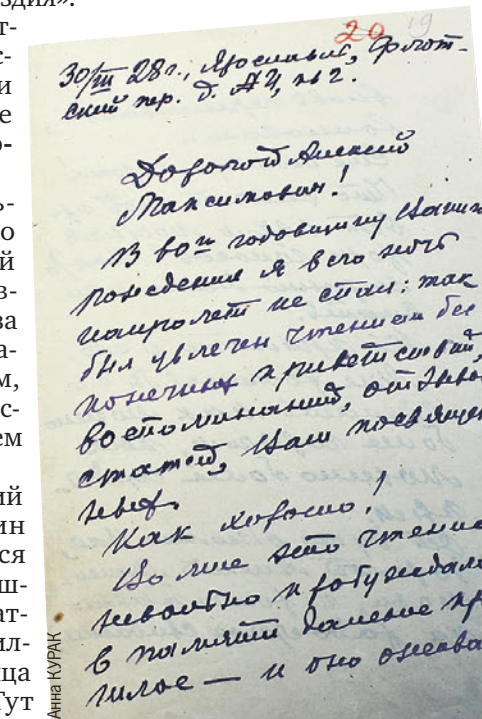 здия».
т-
с-
и
е
о-
ь-
о
й
в-
ва
а-
м,
с-
ем
ий
ин
ся
ш-
ат-
ил-
ца
Тут
20 19
30/III 28 г., Ярославль, Флот-
ский пер. д. № 2.
Дорогой Алексей
Максимович!
В 60ю годовщину Вашего
рождения я всю ночь
напролет не спал: так
был увлечен чтением бес
конечных приветствий,
воспоминаний, отзывов
статей, Вам посвящен
ных.
Как хорошо!
Но мне это чтение
невольно пробуждало
в памяти далекое пр
шлое — и оно ожива
Анна КУРАК